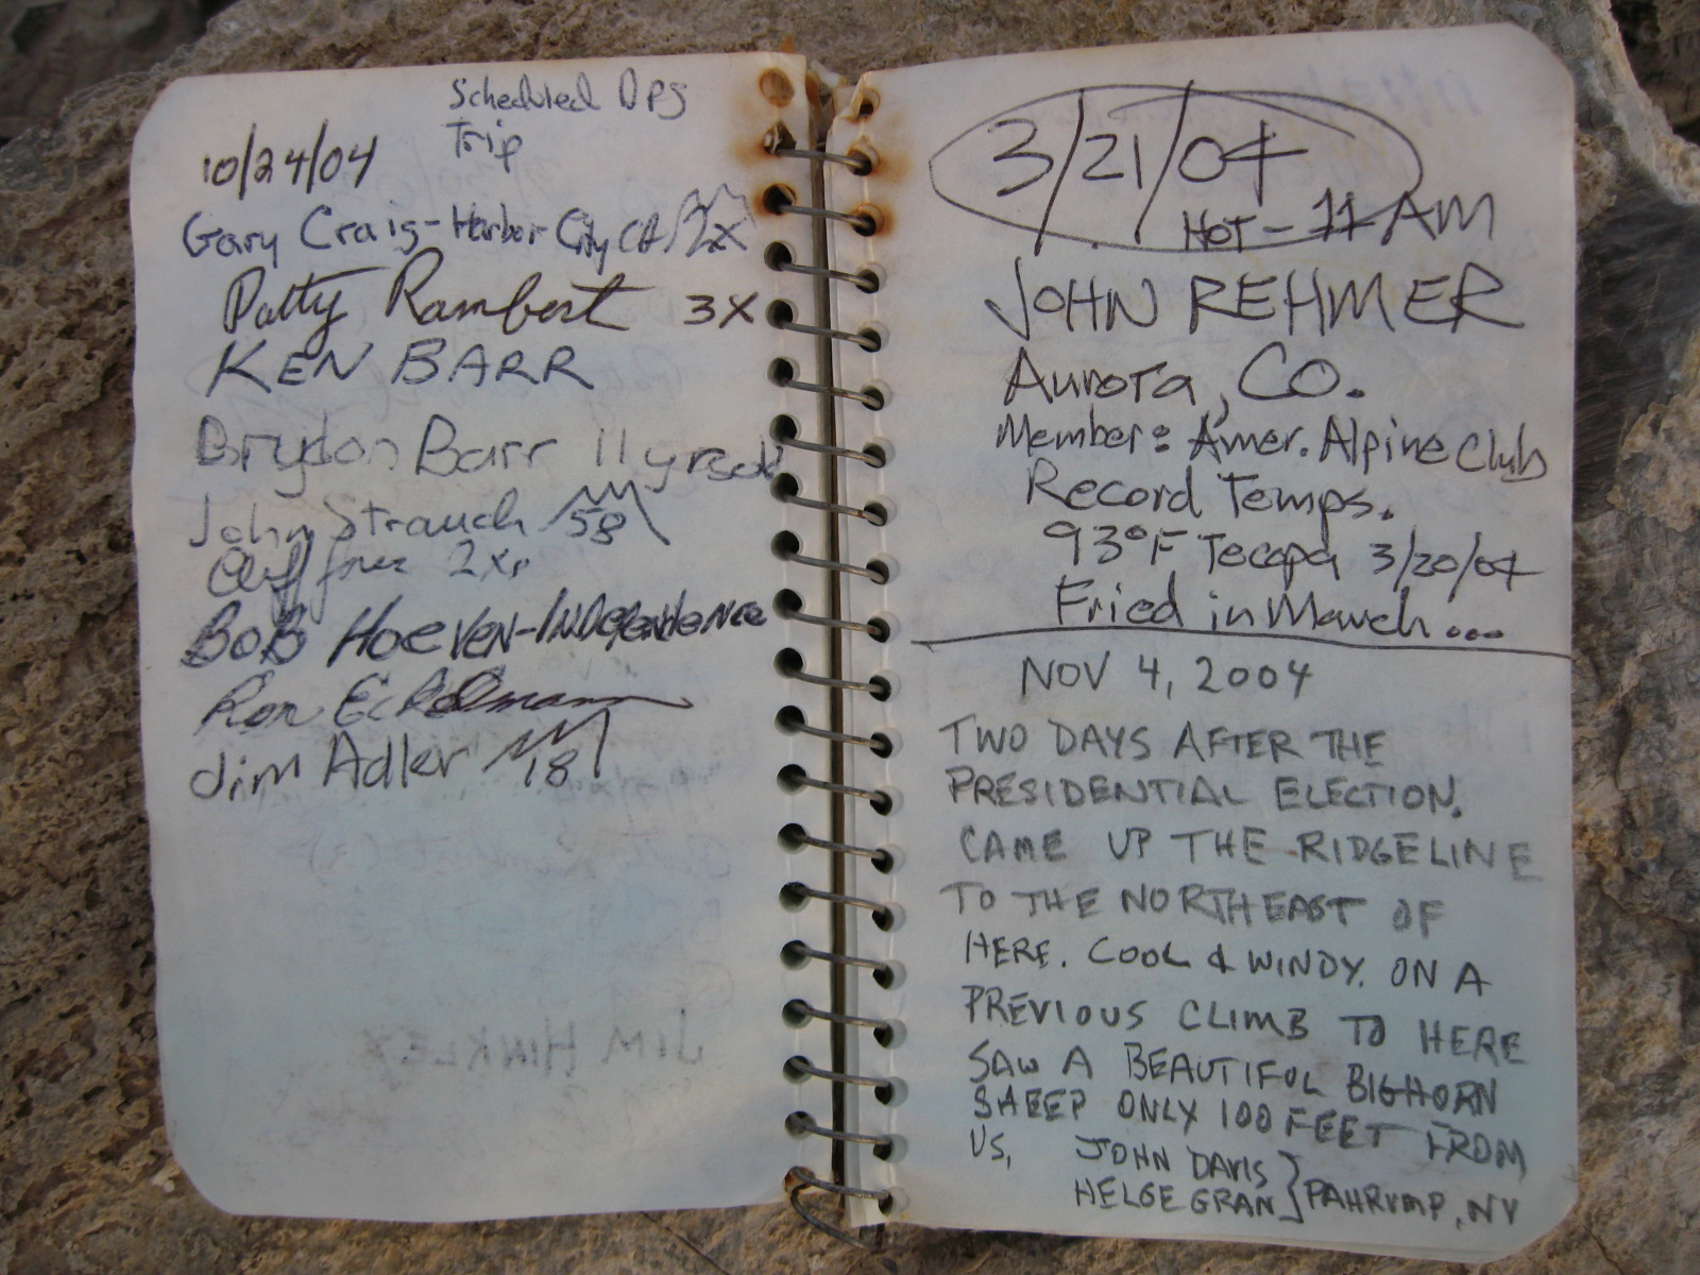 Scheduled DPS
Trip
10/24/04
Gary Craig - Harbor City CA 2x
Patty Rambert 3X
KEN BARR
Brydon Barr 11 yrs old
John Strauch 58
Cliff 2x
BOB HOEVEN - INDEPENDENCE
Ron Eckelmann
Jim Adler 18
JIM HINKLEY
3/21/04
HOT - 11 AM
JOHN REHMER
Aurora, CO.
Member: Amer. Alpine Club
Record Temps.
93°F Tecopa 3/20/04
Fried in March...
NOV 4, 2004
TWO DAYS AFTER THE
PRESIDENTIAL ELECTION.
CAME UP THE RIDGELINE
TO THE NORTHEAST OF
HERE. COOL & WINDY. ON A
PREVIOUS CLIMB TO HERE
SAW A BEAUTIFUL BIGHORN
SHEEP ONLY 100 FEET FROM
US, JOHN DAVIS
HELGE GRAN } PAHRUMP, NV